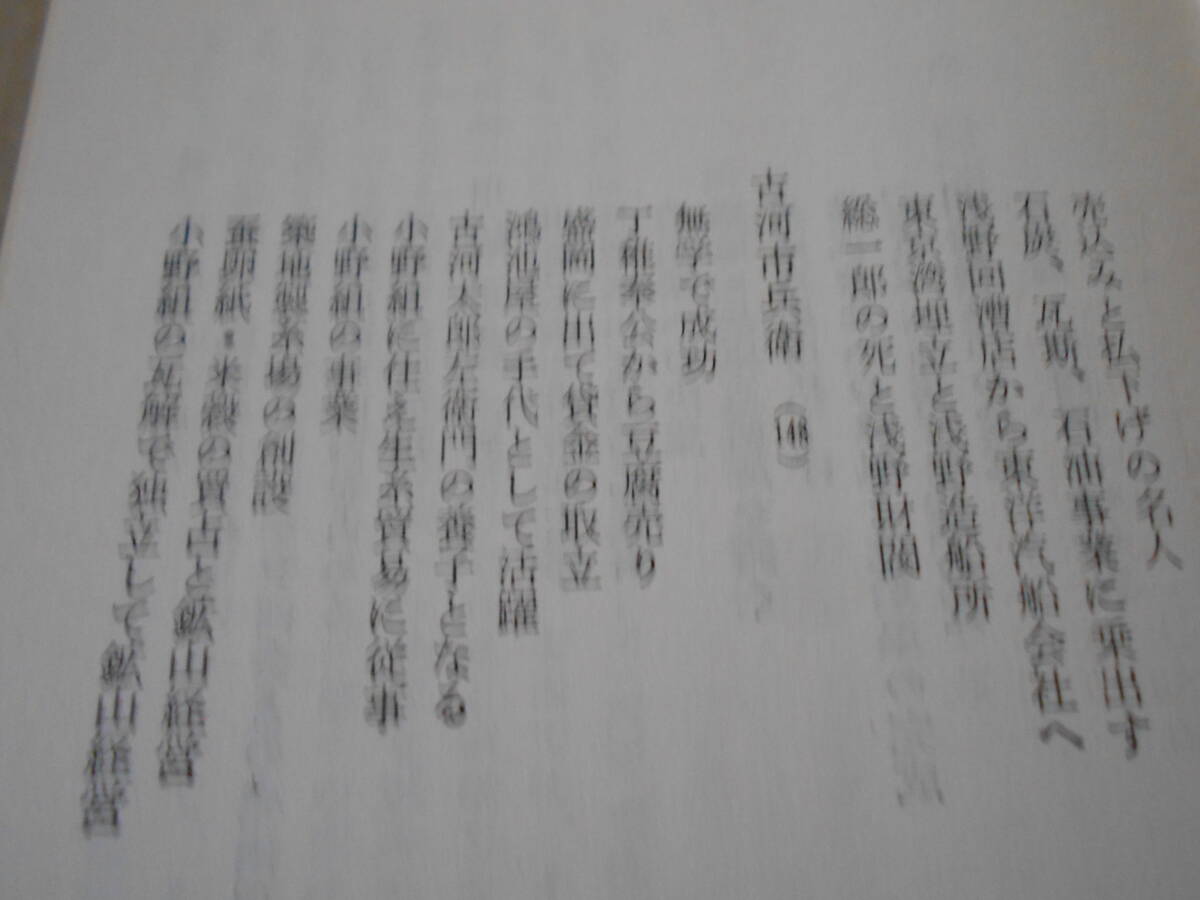 売込みと払下げの名人
石炭、瓦斯、石油事業に乗出す
浅野回漕店から東洋汽船会社へ
東京湾埋立と浅野造船所
総一郎の死と浅野財閥
古河市兵衛 (148)
無学で成功
丁稚奉公から豆腐売り
盛岡に出て貸金の取立
鴻池屋の手代として活躍
古河太郎左衛門の養子となる
小野組に仕え生糸貿易に従事
小野組の事業
築地製糸場の創設
蚕卵紙・米穀の買占と鉱山経営
小野組の瓦解で独立して鉱山経営